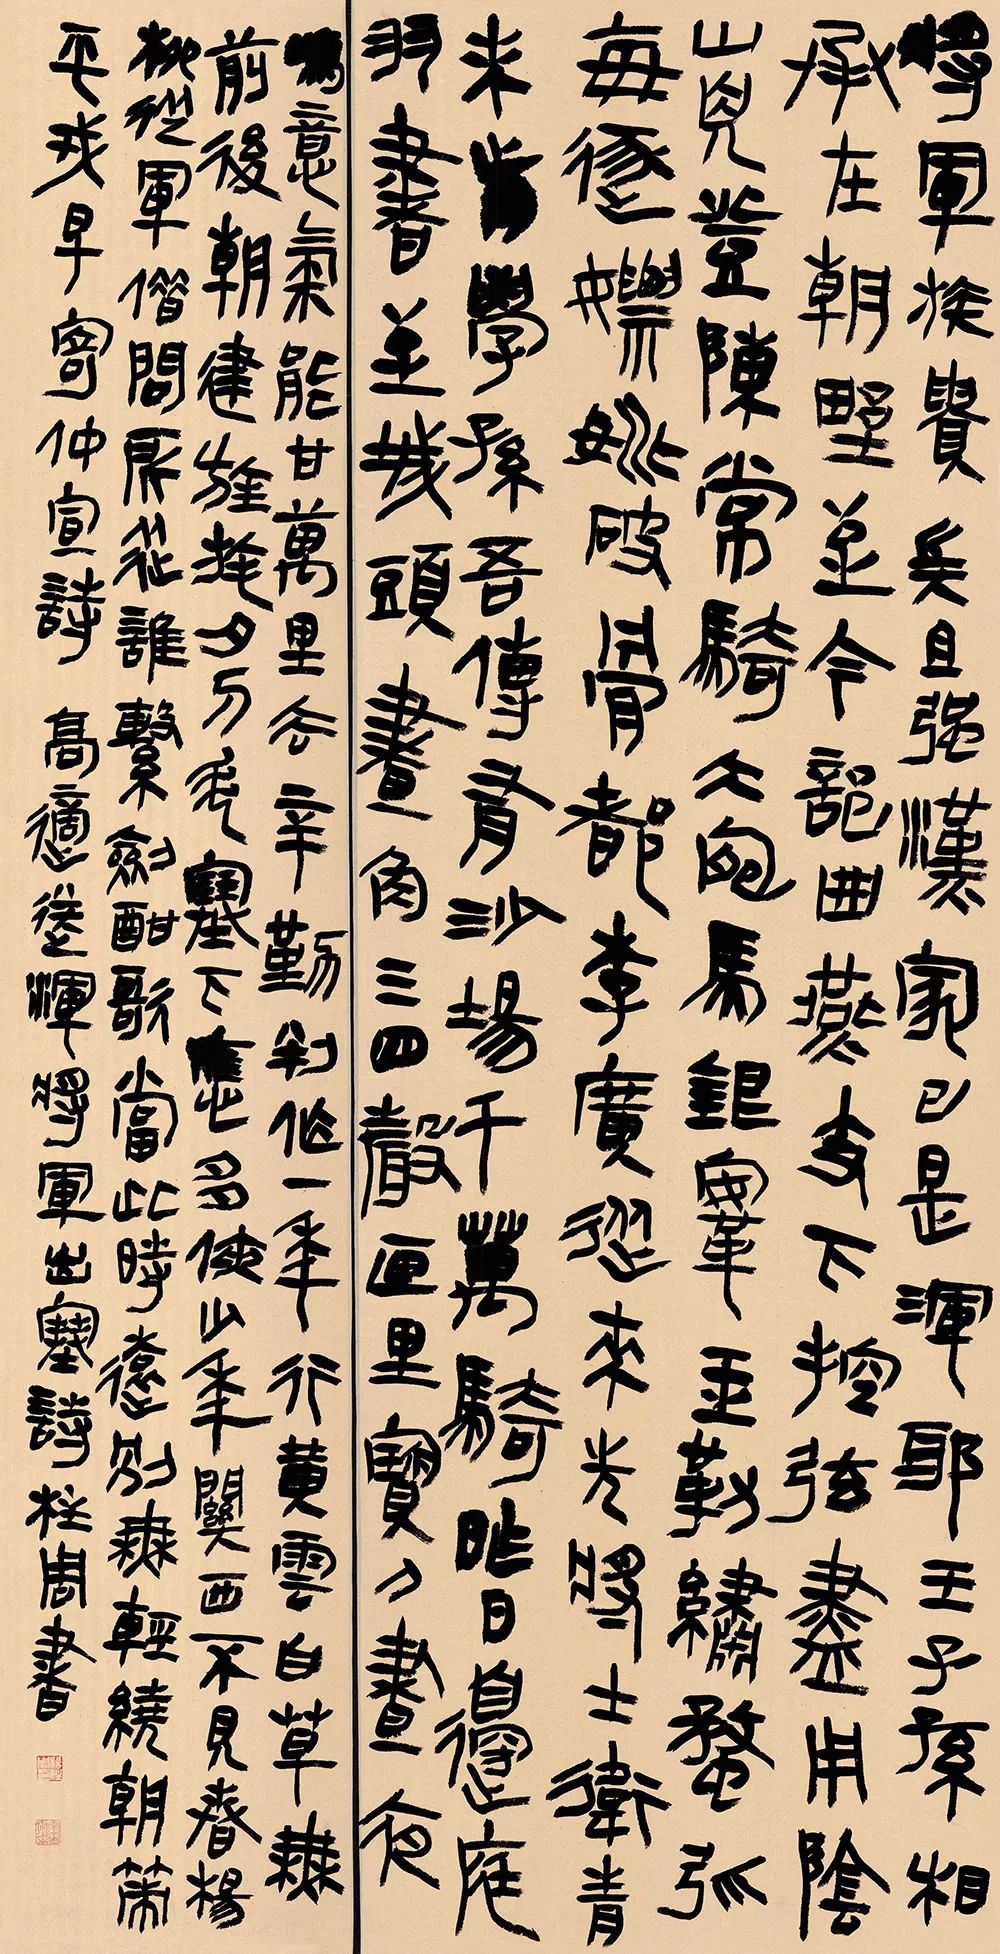 將軍族貴兵且强漢家已是渾耶王子孫相
承在朝野至今部曲燕支下控弦盡用陰
山兒登陳常騎大宛馬銀鞍玉勒繡蝥弧
每逐嫖姚破骨都李廣從來先將士衛青
未肯學孫吾傳有沙場千萬騎昨日邊庭
羽書至城頭畫角三四聲匣里寶刀晝夜
鳴意氣能甘萬里去辛勤判作一年行黃雲白草無
前後朝建旌旄夕刁斗塞下應多俠少年關西不見春楊
柳從軍借問所從誰繫劍酣歌當此時遠別無輕繞朝策
平戎早寄仲宣詩 高適送渾將軍出塞詩 周書